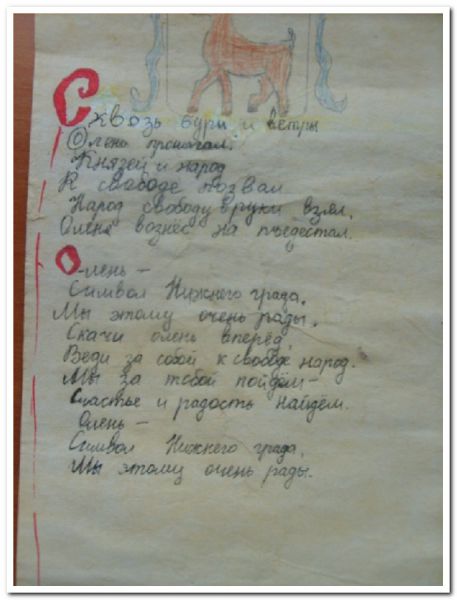 Сквозь бури и ветры
Олень прошагал.
Князей и народ
К свободе позвал
Народ свободу в руки взял,
Оленя вознёс на пъедестал.
Олень –
Символ Нижнего града,
Мы этому очень рады.
Скачи олень вперёд,
Веди за собой к свободе народ.
Мы за тобой пойдём –
Счастье и радость найдём.
Олень –
Символ Нижнего града,
Мы этому очень рады.